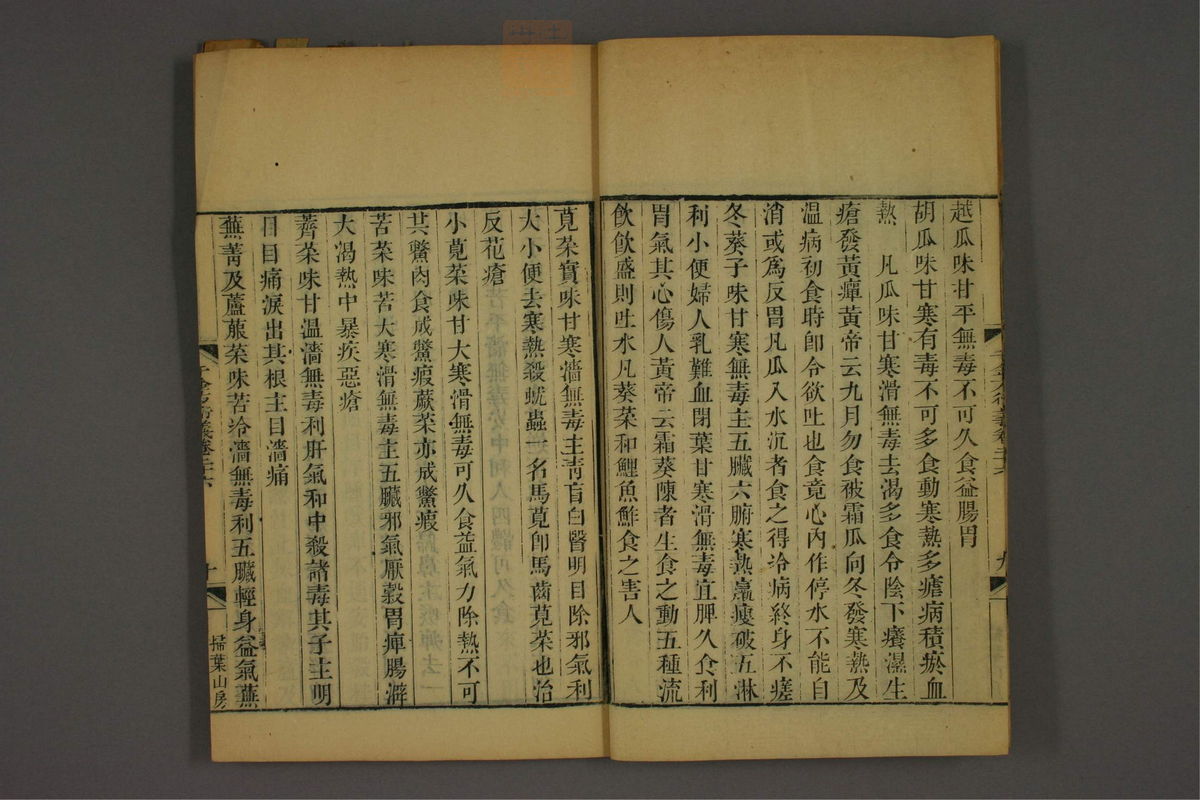 越瓜味甘平無毒不可久食益腸胃
胡瓜味甘寒有毒不可多食動寒熱多瘧病積瘀血
熱　凡瓜味甘寒滑無毒去渴多食令陰下癢濕生
瘡發黃癉黃帝云九月勿食被霜瓜向冬發寒熱及
温病初食時卽令欲吐也食竟心內作停水不能自
消或爲反胃凡瓜入水沉者食之得冷病終身不瘥
冬葵子味甘寒無毒主五臟六腑寒熱羸瘦破五淋
利小便婦人乳難血閉葉甘寒滑無毒宜脾久食利
胃氣其心傷人黃帝云霜葵陳者生食之動五種流
飲飲盛則吐水凡葵菜和鯉魚鮓食之害人
莧菜實味甘寒濇無毒主青盲白瞖明目除邪氣利
大小便去寒熱殺蚘蟲一名馬莧卽馬齒莧菜也治
反花瘡
小莧菜味甘大寒滑無毒可久食益氣力除熱不可
共鱉肉食成鱉瘕蕨菜亦成鱉瘕
苦菜味苦大寒滑無毒主五臟邪氣厭穀胃痺腸澼
大渴熱中暴疾惡瘡
薺菜味甘温濇無毒利肝氣和中殺諸毒其子主明
目目痛淚出其根主目濇痛
蕪菁及蘆菔菜味苦冷濇無毒利五臟輕身益氣蕪
掃葉山房